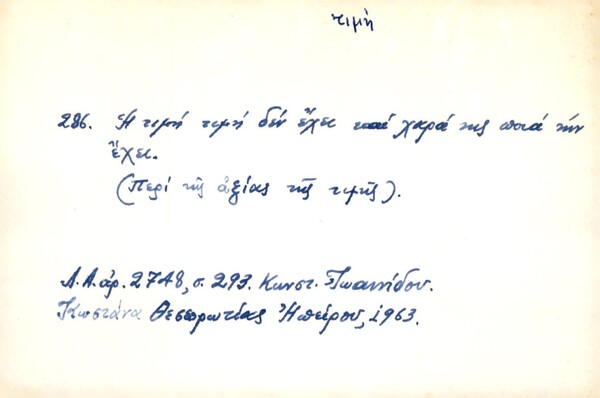 τιμή
286. Ἡ τιμή τιμή δέν ἔχει καί χαρά της ποιά τήν
ἔχει.
(Περί τῆς ἀξίας τῆς τιμῆς).
Λ.Α. ἀρ. 2748, σ. 293. Κωνστ. Ἰωαννίδου.
Κωστάνα Θεσπρωτίας Ἠπείρου, 1963.